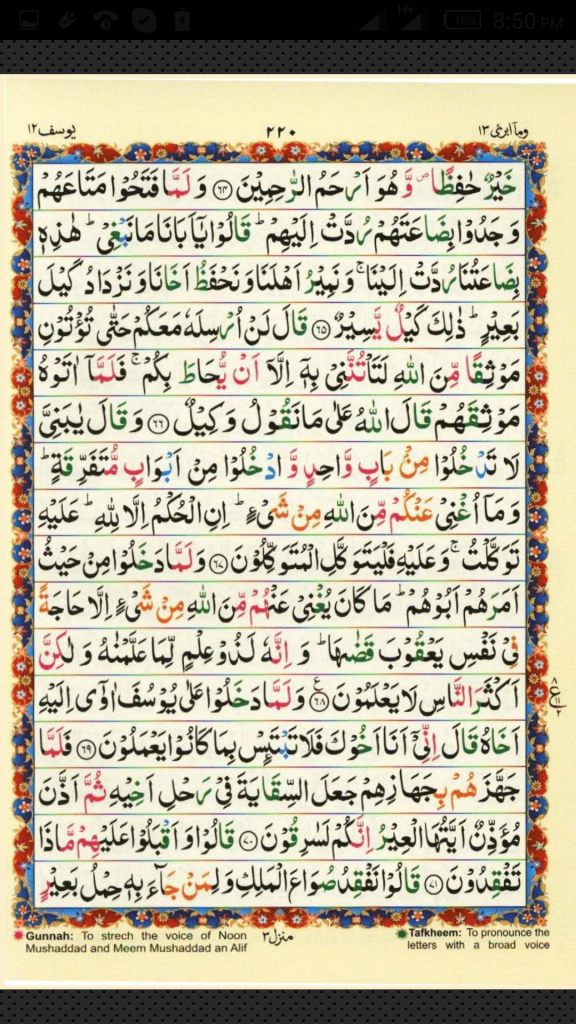 H+ 16% 8:50 PM
يوسف ١٢ ٢٢٠ وما ابرئ ١٣
خَيْرٌ حٰفِظًا ۪ وَّ هُوَ اَرْحَمُ الرّٰحِمِيْنَ ﴿۶۴﴾ وَ لَمَّا فَتَحُوْا مَتَاعَهُمْ
وَجَدُوْا بِضَاعَتَهُمْ رُدَّتْ اِلَيْهِمْ ؕ قَالُوْا يٰۤاَبَانَا مَا نَبْغِيْ ؕ هٰذِهٖ
بِضَاعَتُنَا رُدَّتْ اِلَيْنَا ۚ وَ نَمِيْرُ اَهْلَنَا وَ نَحْفَظُ اَخَانَا وَ نَزْدَادُ كَيْلَ
بَعِيْرٍ ؕ ذٰلِكَ كَيْلٌ يَّسِيْرٌ ﴿۶۵﴾ قَالَ لَنْ اُرْسِلَهٗ مَعَكُمْ حَتّٰى تُؤْتُوْنِ
مَوْثِقًا مِّنَ اللّٰهِ لَتَاْتُنَّنِيْ بِهٖۤ اِلَّاۤ اَنْ يُّحَاطَ بِكُمْ ۚ فَلَمَّاۤ اٰتَوْهُ
مَوْثِقَهُمْ قَالَ اللّٰهُ عَلٰى مَا نَقُوْلُ وَكِيْلٌ ﴿۶۶﴾ وَ قَالَ يٰبَنِيَّ
لَا تَدْخُلُوْا مِنْۢ بَابٍ وَّاحِدٍ وَّ ادْخُلُوْا مِنْ اَبْوَابٍ مُّتَفَرِّقَةٍ ؕ
وَ مَاۤ اُغْنِيْ عَنْكُمْ مِّنَ اللّٰهِ مِنْ شَيْءٍ ؕ اِنِ الْحُكْمُ اِلَّا لِلّٰهِ ؕ عَلَيْهِ
تَوَكَّلْتُ ۚ وَ عَلَيْهِ فَلْيَتَوَكَّلِ الْمُتَوَكِّلُوْنَ ﴿۶۷﴾ وَ لَمَّا دَخَلُوْا مِنْ حَيْثُ
اَمَرَهُمْ اَبُوْهُمْ ؕ مَا كَانَ يُغْنِيْ عَنْهُمْ مِّنَ اللّٰهِ مِنْ شَيْءٍ اِلَّا حَاجَةً
فِيْ نَفْسِ يَعْقُوْبَ قَضٰىهَا ؕ وَ اِنَّهٗ لَذُوْ عِلْمٍ لِّمَا عَلَّمْنٰهُ وَ لٰكِنَّ
اَكْثَرَ النَّاسِ لَا يَعْلَمُوْنَ ﴿۶۸﴾ ع وَ لَمَّا دَخَلُوْا عَلٰى يُوْسُفَ اٰوٰۤى اِلَيْهِ
٨ ع ١١ ٢
اَخَاهُ قَالَ اِنِّيْۤ اَنَا اَخُوْكَ فَلَا تَبْتَىِٕسْ بِمَا كَانُوْا يَعْمَلُوْنَ ﴿۶۹﴾ فَلَمَّا
جَهَّزَهُمْ بِجَهَازِهِمْ جَعَلَ السِّقَايَةَ فِيْ رَحْلِ اَخِيْهِ ثُمَّ اَذَّنَ
مُؤَذِّنٌ اَيَّتُهَا الْعِيْرُ اِنَّكُمْ لَسٰرِقُوْنَ ﴿۷۰﴾ قَالُوْا وَ اَقْبَلُوْا عَلَيْهِمْ مَّا ذَا
تَفْقِدُوْنَ ﴿۷۱﴾ قَالُوْا نَفْقِدُ صُوَاعَ الْمَلِكِ وَ لِمَنْ جَآءَ بِهٖ حِمْلُ بَعِيْرٍ
Gunnah: To strech the voice of Noon
Mushaddad and Meem Mushaddad an Alif
منزل ٣
Tafkheem: To pronounce the
letters with a broad voice